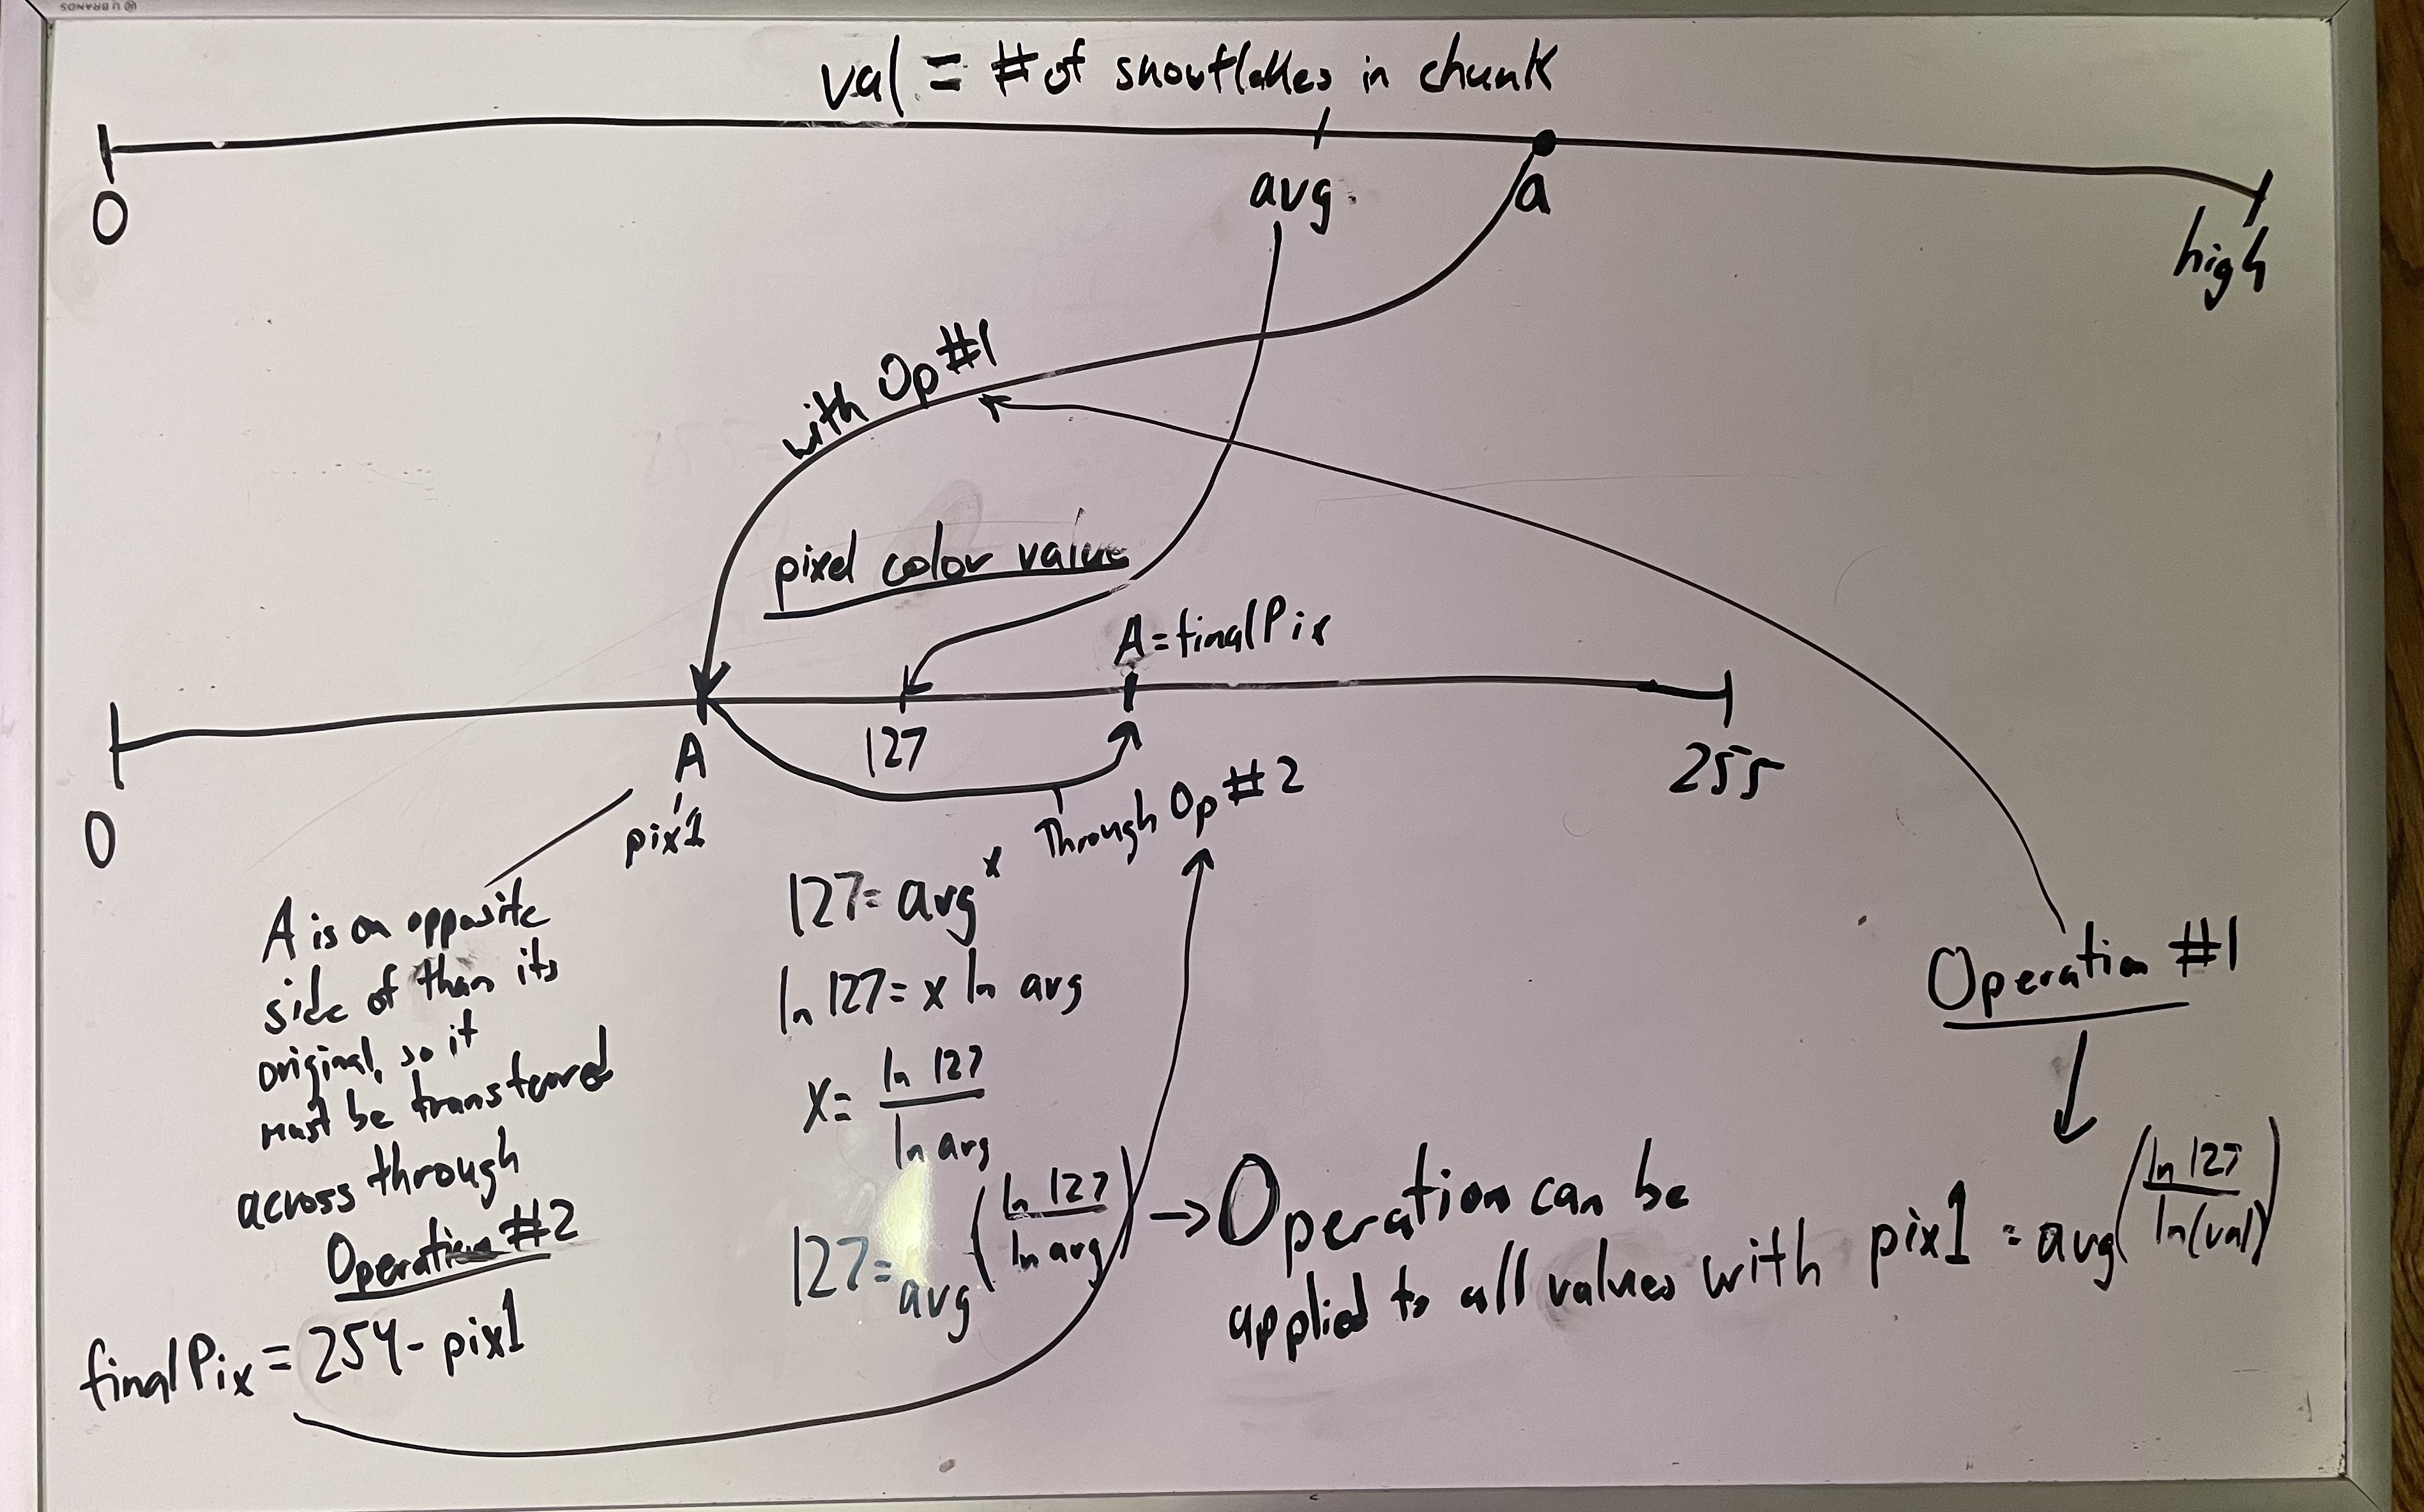 U BRANDS
val = # of snowflakes in chunk
0
avg.
a
high
with Op #1
pixel color value
A = finalPix
0
A
pix1
127
255
Through Op #2
A is on opposite
side of than its
original, so it
must be transfered
across through
Operation #2
finalPix = 254 - pix1
127 = avg^x
ln 127 = x ln avg
x = ln 127 / ln avg
127 = avg^(ln 127 / ln avg)
→ Operation can be
applied to all values with pix1 = avg^(ln 127 / ln(val))
Operation #1